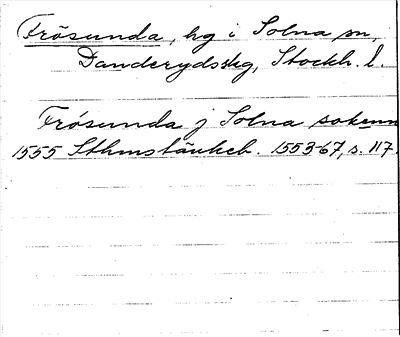 Frösunda, hg i Solna sn,
Danderydsskg, Stockh. l.
Frösunda j Solna sokenn
1555 Sthmstänkeb. 1553-67, s. 117.